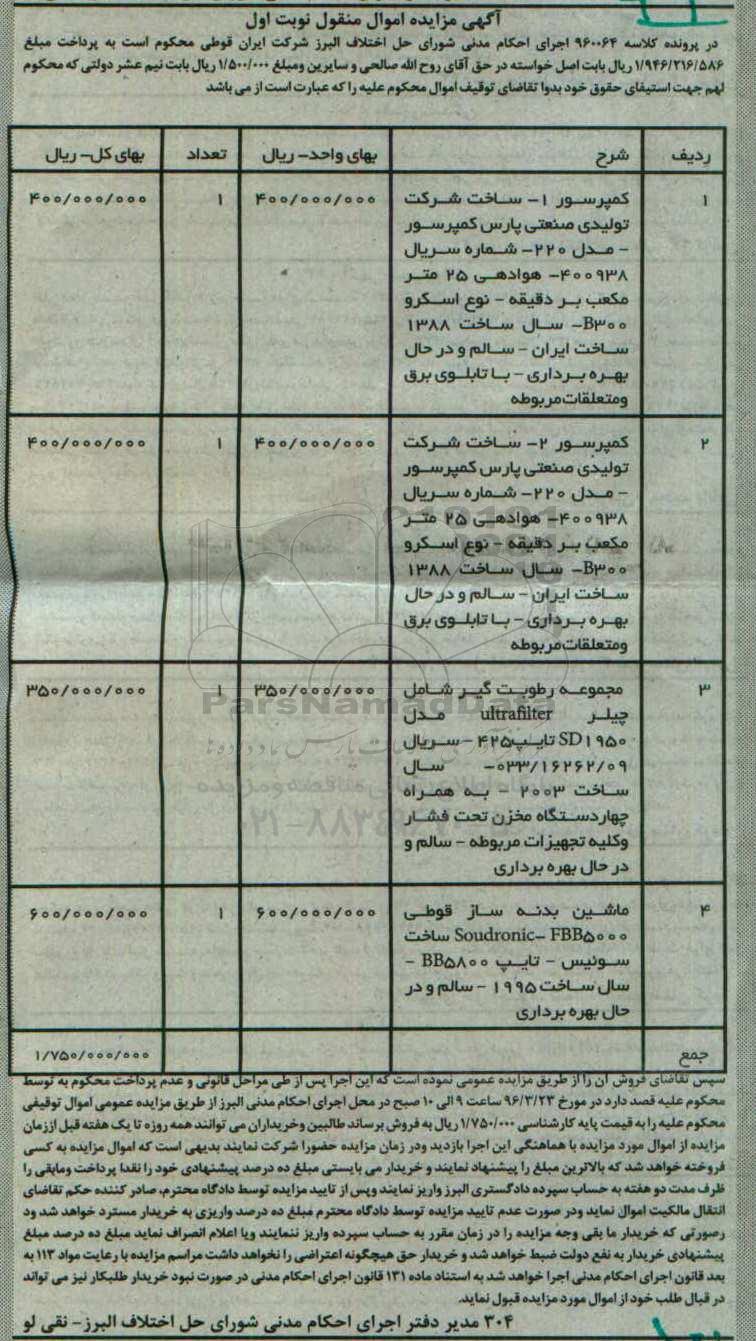 آگهی مزایده اموال منقول نوبت اول
در پرونده کلاسه ۹۶۰۰۶۴ اجرای احکام مدنی شورای حل اختلاف البرز شرکت ایران قوطی محکوم است به پرداخت مبلغ
۱/۹۴۶/۲۱۶/۵۸۶ ریال بابت اصل خواسته در حق آقای روح الله صالحی و سایرین ومبلغ ۱/۵۰۰/۰۰۰ ریال بابت نیم عشر دولتی که محکوم
لهم جهت استیفای حقوق خود بدوا تقاضای توقیف اموال محکوم علیه را که عبارت است از می باشد
ردیف شرح بهای واحد– ریال تعداد بهای کل– ریال
۱ کمپرسور ۱– ساخت شرکت ۴۰۰/۰۰۰/۰۰۰ ۱ ۴۰۰/۰۰۰/۰۰۰
تولیدی صنعتی پارس کمپرسور
– مدل ۲۲۰– شماره سریال
۴۰۰۹۳۸– هوادهی ۲۵ متر
مکعب بر دقیقه – نوع اسکرو
B۳۰۰– سال ساخت ۱۳۸۸
ساخت ایران – سالم و در حال
بهره برداری – با تابلوی برق
ومتعلقات مربوطه
۲ کمپرسور ۲– ساخت شرکت ۴۰۰/۰۰۰/۰۰۰ ۱ ۴۰۰/۰۰۰/۰۰۰
تولیدی صنعتی پارس کمپرسور
– مدل ۲۲۰– شماره سریال
۴۰۰۹۳۸– هوادهی ۲۵ متر
مکعب بر دقیقه – نوع اسکرو
B۳۰۰– سال ساخت ۱۳۸۸
ساخت ایران – سالم و در حال
بهره برداری – با تابلوی برق
ومتعلقات مربوطه
۳ مجموعه رطوبت گیر شامل ۳۵۰/۰۰۰/۰۰۰ ۱ ۳۵۰/۰۰۰/۰۰۰
چیلر ultrafilter مدل
SD۱۹۵۰ تایپ۴۲۵ – سریال
۰۳۳/۱۶۲۶۲/۰۹– سال
ساخت ۲۰۰۳ – به همراه
چهاردستگاه مخزن تحت فشار
وکلیه تجهیزات مربوطه – سالم و
در حال بهره برداری
۴ ماشین بدنه ساز قوطی ۶۰۰/۰۰۰/۰۰۰ ۱ ۶۰۰/۰۰۰/۰۰۰
Soudronic– FBB۵۰۰۰ ساخت
سوئیس – تایپ BB۵۸۰۰ –
سال ساخت ۱۹۹۵ – سالم و در
حال بهره برداری
جمع ۱/۷۵۰/۰۰۰/۰۰۰
سپس تقاضای فروش آن را از طریق مزایده عمومی نموده است که این اجرا پس از طی مراحل قانونی و عدم پرداخت محکوم به توسط
محکوم علیه قصد دارد در مورخ ۹۶/۳/۲۳ ساعت ۹ الی ۱۰ صبح در محل اجرای احکام مدنی البرز از طریق مزایده عمومی اموال توقیفی
محکوم علیه را به قیمت پایه کارشناسی ۱/۷۵۰/۰۰۰ ریال به فروش برساند طالبین وخریداران می توانند همه روزه تا یک هفته قبل اززمان
مزایده از اموال مورد مزایده با هماهنگی این اجرا بازدید ودر زمان مزایده حضورا شرکت نمایند بدیهی است که اموال مزایده به کسی
فروخته خواهد شد که بالاترین مبلغ را پیشنهاد نمایند و خریدار می بایستی مبلغ ده درصد پیشنهادی خود را نقدا پرداخت ومابقی را
ظرف مدت دو هفته به حساب سپرده دادگستری البرز واریز نمایند وپس از تایید مزایده توسط دادگاه محترم، صادر کننده حکم تقاضای
انتقال مالکیت اموال نماید ودر صورت عدم تایید مزایده توسط دادگاه محترم مبلغ ده درصد واریزی به خریدار مسترد خواهد شد ود
رصورتی که خریدار ما بقی وجه مزایده را در زمان مقرر به حساب سپرده واریز ننمایند ویا اعلام انصراف نماید مبلغ ده درصد مبلغ
پیشنهادی خریدار به نفع دولت ضبط خواهد شد و خریدار حق هیچگونه اعتراضی را نخواهد داشت مراسم مزایده با رعایت مواد ۱۱۳ به
بعد قانون اجرای احکام مدنی اجرا خواهد شد به استناد ماده ۱۳۱ قانون اجرای احکام مدنی در صورت نبود خریدار طلبکار نیز می تواند
در قبال طلب خود از اموال مورد مزایده قبول نماید.
۳۰۴ مدیر دفتر اجرای احکام مدنی شورای حل اختلاف البرز– نقی لو
ParsNamadData